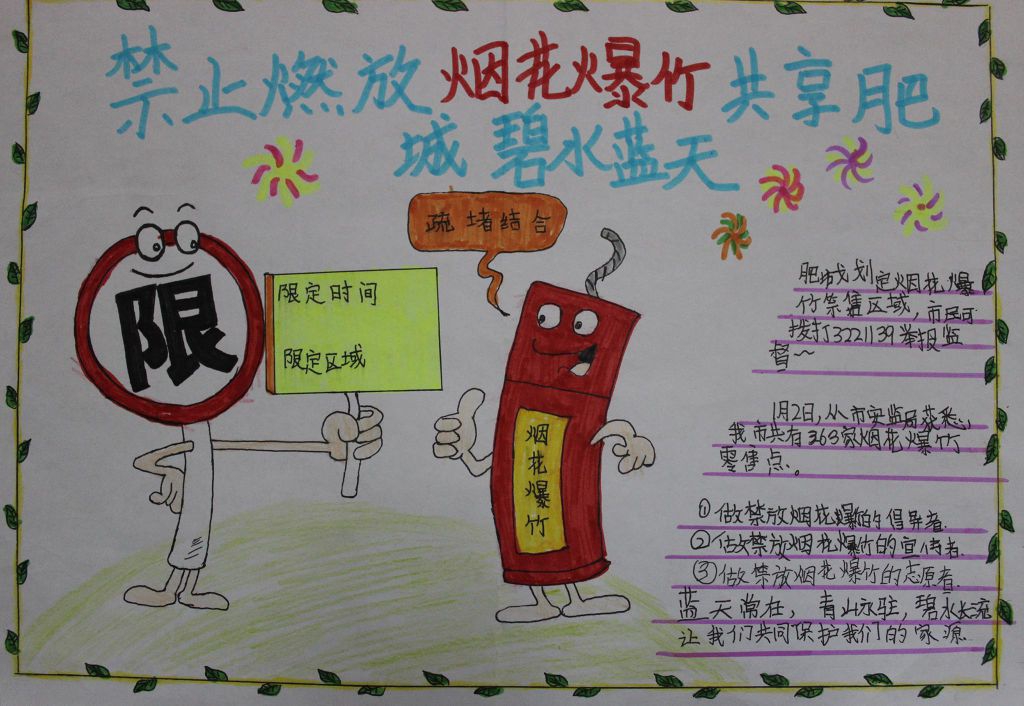 禁止燃放烟花爆竹共享肥
城碧水蓝天
疏堵结合
限
限定时间
限定区域
烟花爆竹
肥城划定烟花爆
竹禁售区域，市民可
拨打3221139举报监
督～
1月2日，从市安监局获悉，
我市共有363家烟花爆竹
零售点。
①做禁放烟花爆竹的倡导者.
②做禁放烟花爆竹的宣传者.
③做禁放烟花爆竹的志愿者.
蓝天常在，青山永驻，碧水长流
让我们共同保护我们的家源.